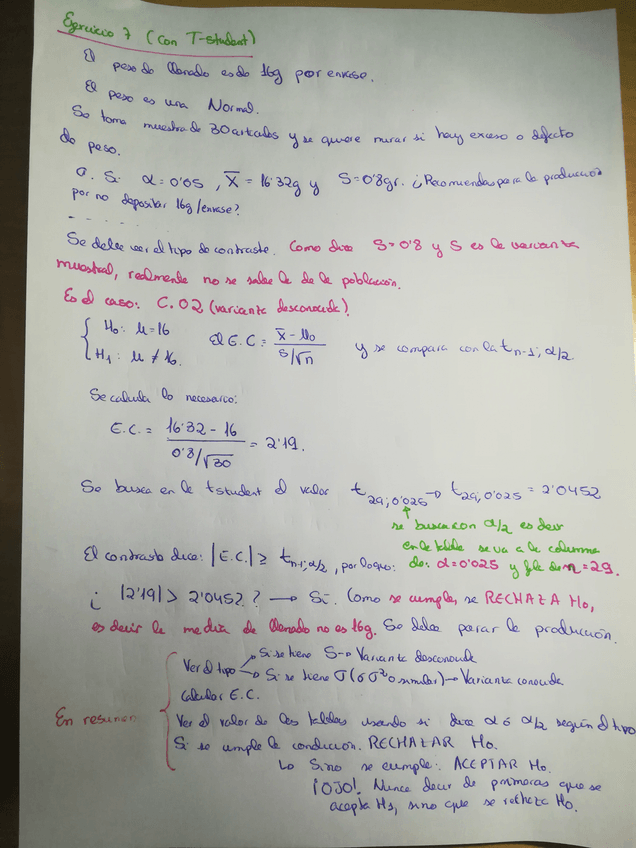 Ejercicio 7 (con T-student)
El peso de llenado es de 16g por envase.
El peso es una Normal.
Se toma muestra de 30 articulos y se quiere mirar si hay exceso o defecto
de peso.
a. Si α=0'05, X̄=16'32g y S=0'8gr. ¿Recomiendas para la producción
por no depositar 16g/envase?
- - - - -
Se debe ver el tipo de contraste. Como dice S=0'8 y S es la varianza
muestral, realmente no se sabe la de la población.
Es el caso: C.02 (varianza desconocida).
H₀: μ=16
H₁: μ≠16.
El E.C.= (X̄-μ₀)/(S/√n) y se compara con la tₙ₋₁; α/2.
Se calcula lo necesario:
E.C.= (16'32-16)/(0'8/√30) = 2'19.
Se busca en la t student el valor t₂₉;₀'₀₂₅ → t₂₉;₀'₀₂₅ = 2'0452
↑
se busca con α/2 es decir
en la tabla se va a la columna
de: α=0'025 y fila de n=29.
El contraste dice: |E.C.| ≥ tₙ₋₁;α/2, por lo que:
¿ |2'19| > 2'0452? → Sí. Como se cumple, se RECHAZA H₀,
es decir la media de llenado no es 16g. Se debe parar la producción.
En resumen
Ver el tipo → Si se tiene S → Varianza desconocida
→ Si se tiene σ (ó σ² o similar) → Varianza conocida
Calcular E.C.
Ver el valor de las tablas usando si dice α ó α/2 según el tipo
Si se cumple la condición. RECHAZAR H₀.
Lo Si no se cumple: ACEPTAR H₀.
¡OJO! Nunca decir de primeras que se
acepta H₁, sino que se rechaza H₀.